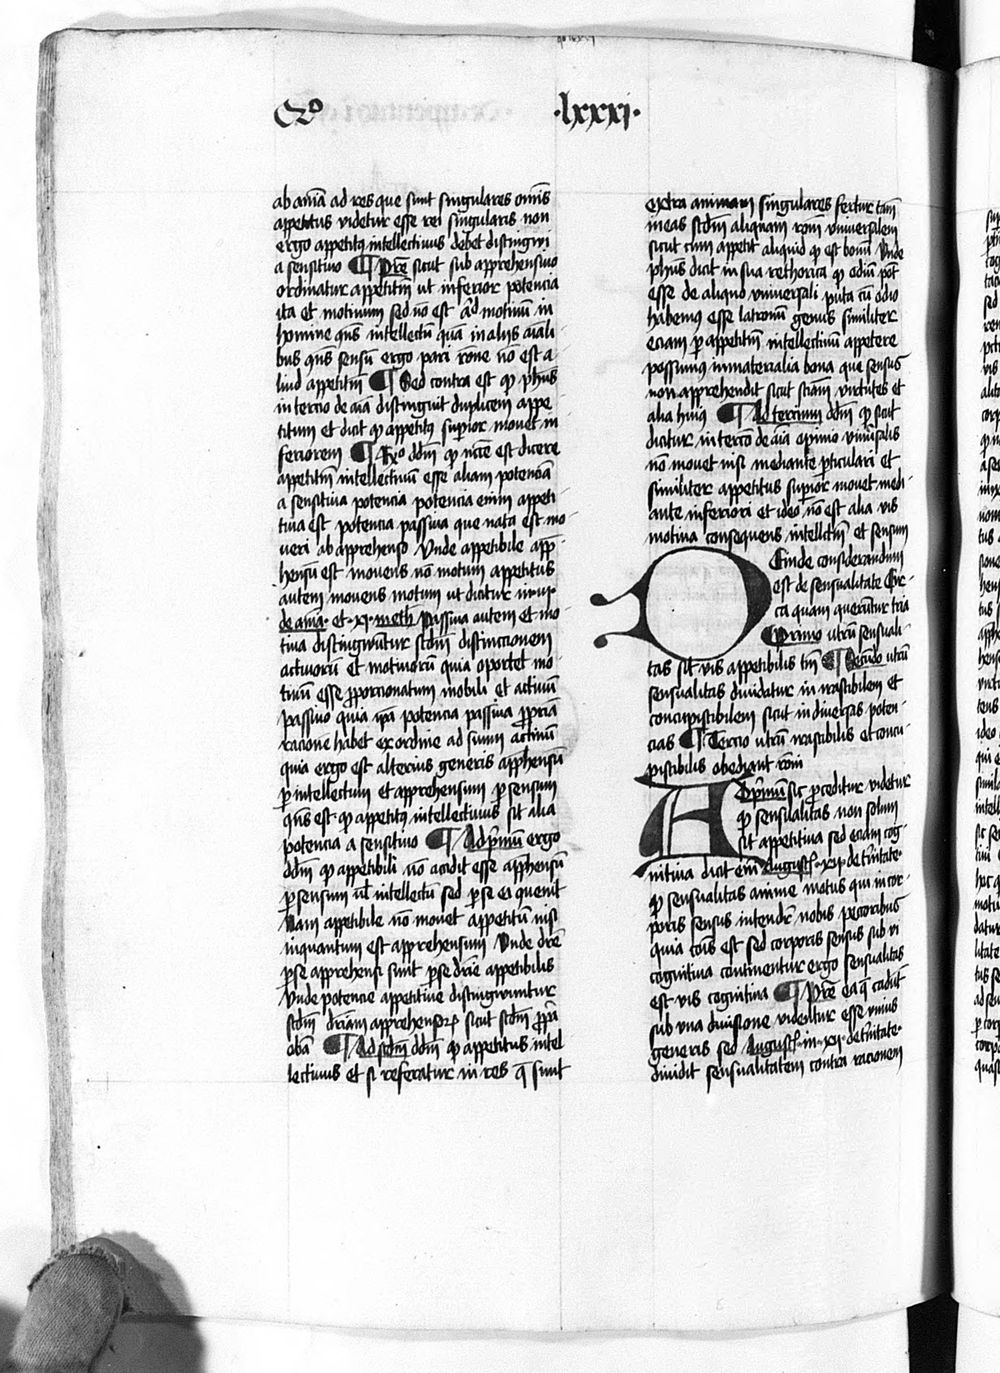 Qo
·lxxxj·
ab aīa ad res que sunt singulares omīs
appetitus videtur esse rei singularis non
ergo appetitꝰ intellectiuus debet distingwi
a sensitiuo ¶ Pᵗre sicut sub apprehensiuo
ordinatur appetitm̄ ut inferior potencia
ita et motiuum sed nō est aĺd motiuū in
homine qn̄s intellectū quā in alijs aīali
bus qn̄s sensū ergo pari rōne nō est a
liud appetitm̄ ¶ Sed contra est qꝫ ph̄us
in tercio de aīa distinguit duplicem appe
titum et dicit qꝫ appetitꝰ sup̄ior mouet in
feriorem ¶ Rꝰo dd̄m qꝫ nc̄c̄e est dicere
appetitm̄ intellectiuū esse aliam potenciā
a sensitiua potencia potencia enim appeti
tiua est potencia passiua que nata est mo
ueri ab apprehenso Unde appetibile app̄
hensū est mouens nō motum appetitus
autem mouens motum ut dicitur in·iij·
de aīma· et ·xj· meth̄ Passiua autem et mo
tiua distingwūtur scd̄m distinccionem
actiuorū et motiuorū quia oportet mo
tiuū esse ꝓporcionatum mobili et actiuū
passiuo quia ip̄a potencia passiua ꝓpriā
racionē habet ex ordine ad suum actiuū
quia ergo est alterius generis app̄hensū
ꝑ intellectum et apprehensum ꝑ sensum
qn̄s est qꝫ appetitꝰ intellectiuus sit alia
potencia a sensitiuo ¶ Ad p̄mū ergo
dd̄m qꝫ appetibili nō accidit esse app̄hensū
ꝑ sensum ul̄ intellectū sed ꝑ se ei quenit
Nam appetibile nō mouet appetitū nisi
inquantum est apprehensum Unde dr̄ē
ꝑ se apprehensi sunt ꝑ se dr̄ie appetibilis
Unde potencie appetitiue distingwuntur
scd̄m driam apprehensoꝝ sicut scd̄m ꝓpa
obā ¶ Ad scd̄m dd̄m qꝫ appetitus intel
lectiuus et si referatur in res q̄ sunt
extra animam singulares fertur tam̄
in eas scd̄m aliquam rōm vniuersalem
sicut cum appetit aliquid qꝫ est bonū Unde
ph̄us dicit in sua rethorica qꝫ odiū pōt
esse de aliquo vniuersali puta cū odio
habemꝰ esse latronū genus similiter
eciam ꝑ appetitm̄ intellectiuū appetere
possumꝰ inmaterialia bona que sensus
non apprehendit sicut sciam̄ virtutes et
alia huiꝰ ¶ Ad tercium dd̄m qꝫ sicut
dicitur in terco de aīa opinio vniūsalis
nō mouet nisi mediante ꝑticulari et
similiter appetitus sup̄ior mouet medi
ante inferiori et ideo nō est alia vis
motiua consequens intellctm̄ et sensum
Deinde considerandum
est de sensualitate Cir-
ca quam querūtur tria
Primo utrū sensuali-
tas sit vis appetibilis tm̄ ¶ Secūdo utrū
sensualitas diuidatur in irascibilem et
concupiscibilem sicut in diuersas poten-
cias ¶ Tercio utrū irascibilis et concu-
piscibilis obediant rōni
Ad p̄mū sic ꝓceditur videtur
qꝫ sensualitas non solum
sit appetitiua sed eciam cog-
nitiua dicit em̄ August⁹·xij· de t̄nitate·
qꝫ sensualitas anime motus qui in cor-
poris sensus intendit̄ nobis pecoribus
quia cōis est sed corporis sensus sub vi
cognitiua continentur ergo sensualitas
est vis cognitiua ¶ Pᵗre ea q̄ cadūt
sub vna diuisione videntur esse vnius
generis sed August⁹ ·in· xij· de t̄nitate·
diuidit sensualitatem contra racionem